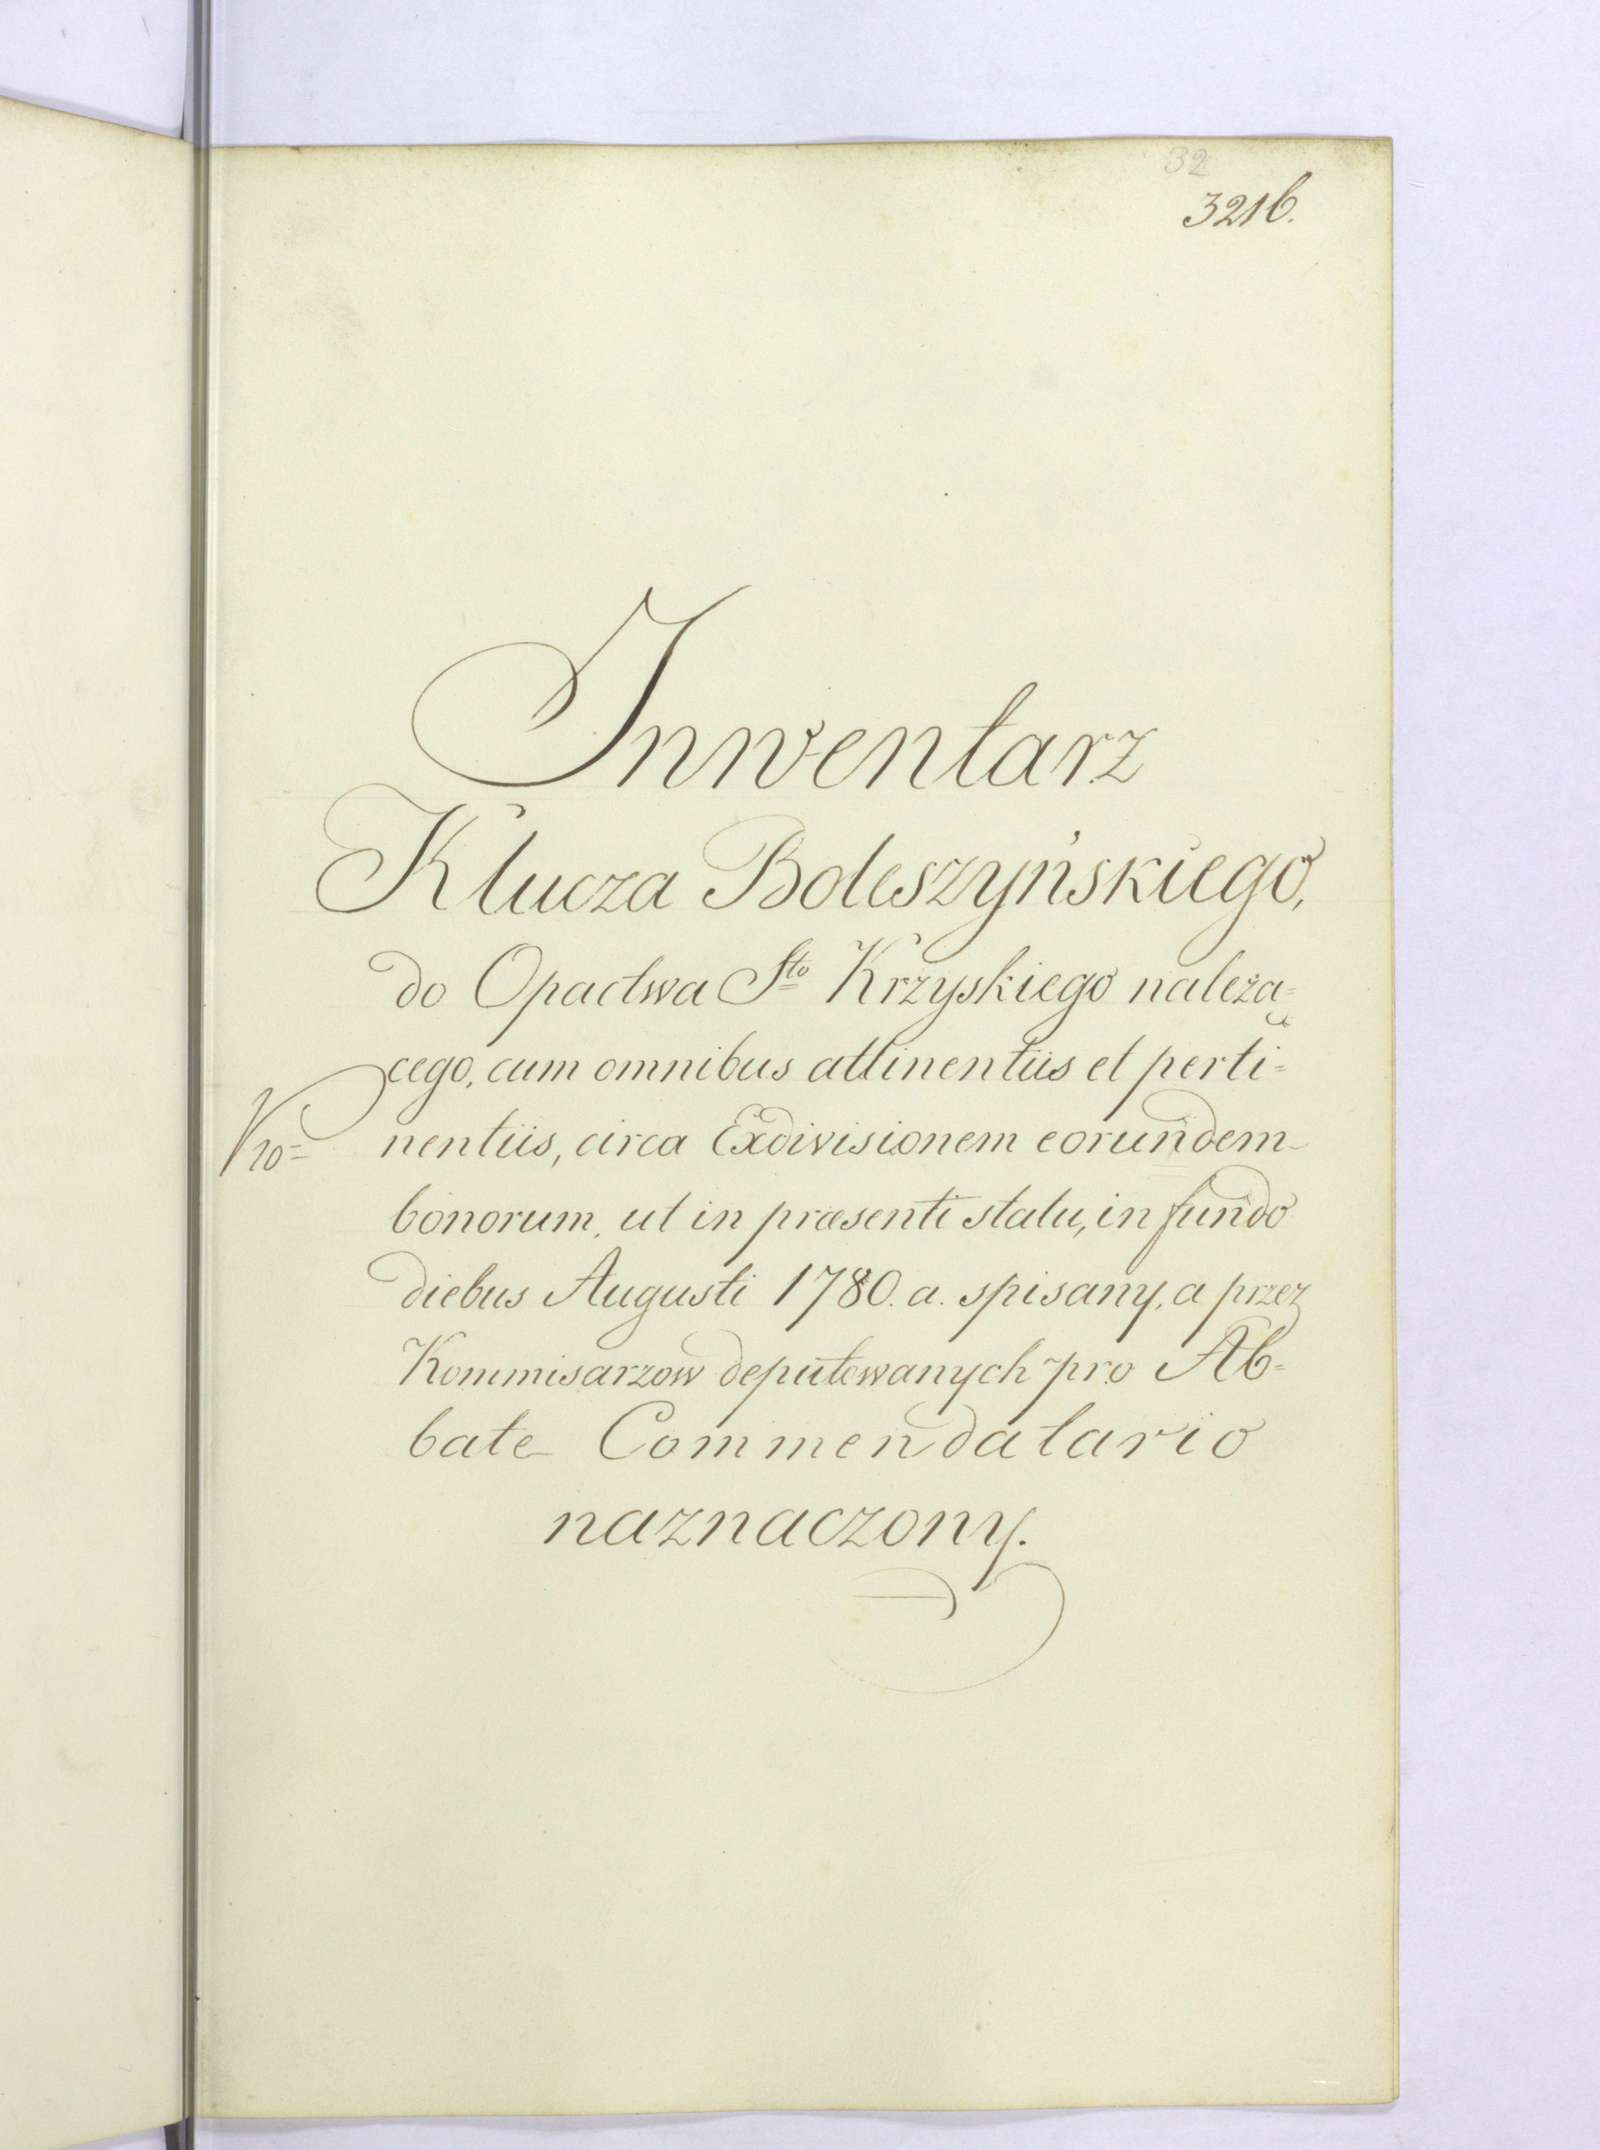 32
3216.
Inwentarz
Klucza Boleszyńskiego,
do Opactwa Sto Krzyskiego należą=
cego, cum omnibus attinentiis et perti=
nentiis, circa Exdivisionem eorundem
bonorum, ut in præsenti statu, in fundo
diebus Augusti 1780. a. spisany, a przez
Kommisarzow deputowanych pro Ab=
bate Commendatario
naznaczony.